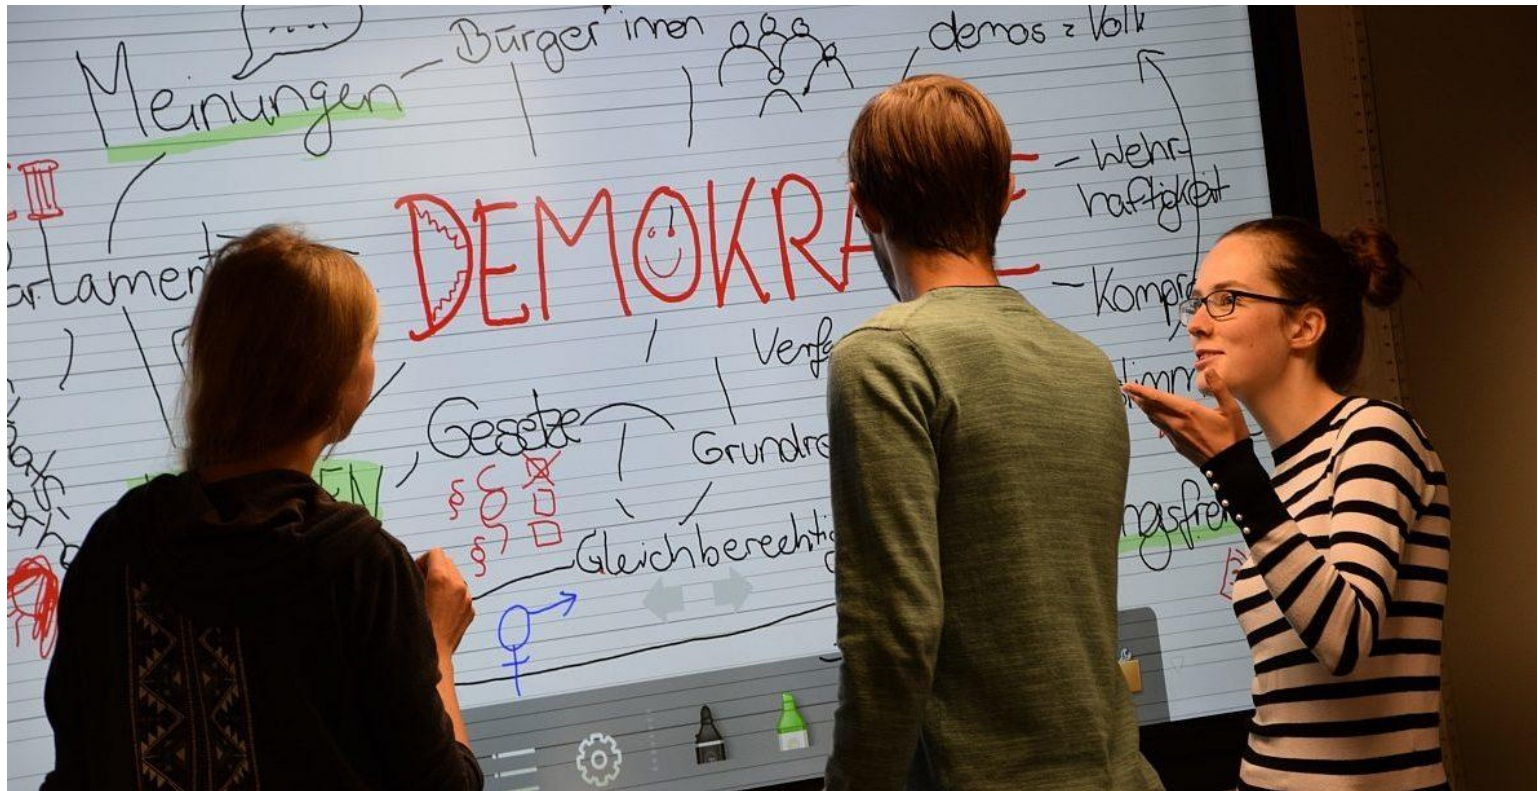 Meinungen
Bürger*innen
demos = Volk
Wehr-
haftigkeit
DEMOKRA
E
arlament
Kompro
Verfa
stimm
Gesetze
EN
Grundre
§
§
Gleichberechtig
ngsfrei